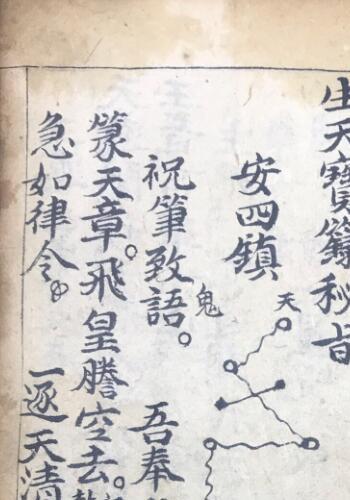 生天寶籙秘旨
安四鎮
天
鬼
祝筆致語。 吾奉
篆天章。飛皇謄空去。
急如律令。 一逐天清